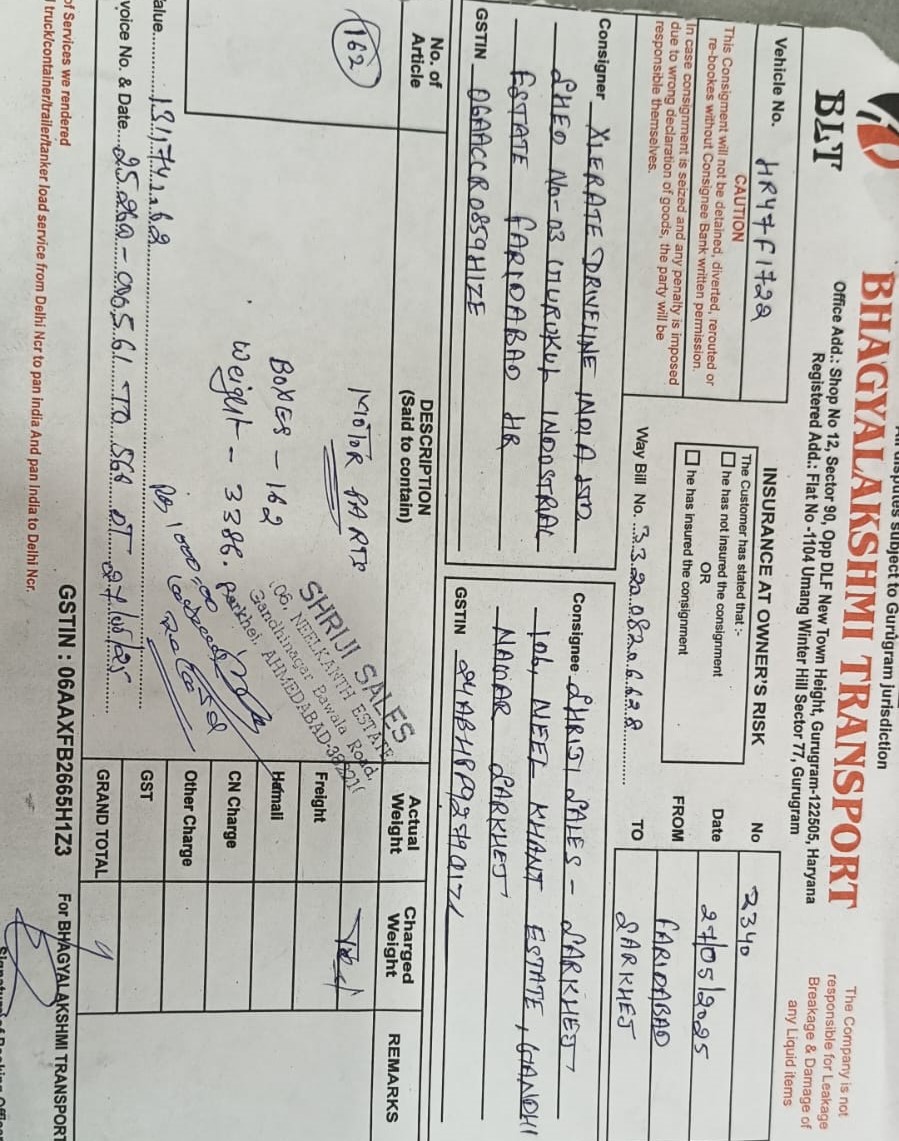 All disputes subject to Gurugram jurisdiction
BLT
BHAGYALAKSHMI TRANSPORT
Office Add.: Shop No 12, Sector 90, Opp DLF New Town Height, Gurugram-122505, Haryana
Registered Add.: Flat No -1104 Umang Winter Hill Sector 77, Gurugram
The Company is not
responsible for Leakage
Breakage & Damage of
any Liquid items
Vehicle No. HR47F1722
CAUTION
This Consigment will not be detained, diverted, rerouted or
re-bookes without Consignee Bank written permission.
In case consignment is seized and any penalty is imposed
due to wrong declaration of goods, the party will be
responsible themselves.
INSURANCE AT OWNER'S RISK
The Customer has stated that :-
he has not insured the consignment
OR
he has insured the consignment
Way Bill No. 332208206628
No 2340
Date 27/05/2025
FROM FARIDABAD
TO SARKHEJ
Consigner XLERATE DRIVELINE INDIA LTD
SHED No-03 GURUKUL INDUSTRIAL
ESTATE FARIDABAD HR
GSTIN 06AACCR0859H1ZE
Consignee SHRIJI SALES - SARKHEJ
106, NEEL KHANT ESTATE, GANDHI
NAGAR SARKHEJ
GSTIN
No. of
Article
DESCRIPTION
(Said to contain)
Actual
Weight
Charged
Weight
REMARKS
162
MOTOR PARTS
BOXES - 162
Weight - 3386.
SHRIJI SALES
06, NEELKANTH ESTATE
Gandhinagar Bawala Road,
Sarkhej, AHMEDABAD-382210
Freight
Hamali
CN Charge
Other Charge
GST
GRAND TOTAL
alue
voice No. & Date TO 566 DT 27/05/25
GSTIN : 06AAXFB2665H1Z3
For BHAGYALAKSHMI TRANSPORT
of Services we rendered
l truck/container/trailer/tanker load service from Delhi Ncr to pan india And pan India to Delhi Ncr.